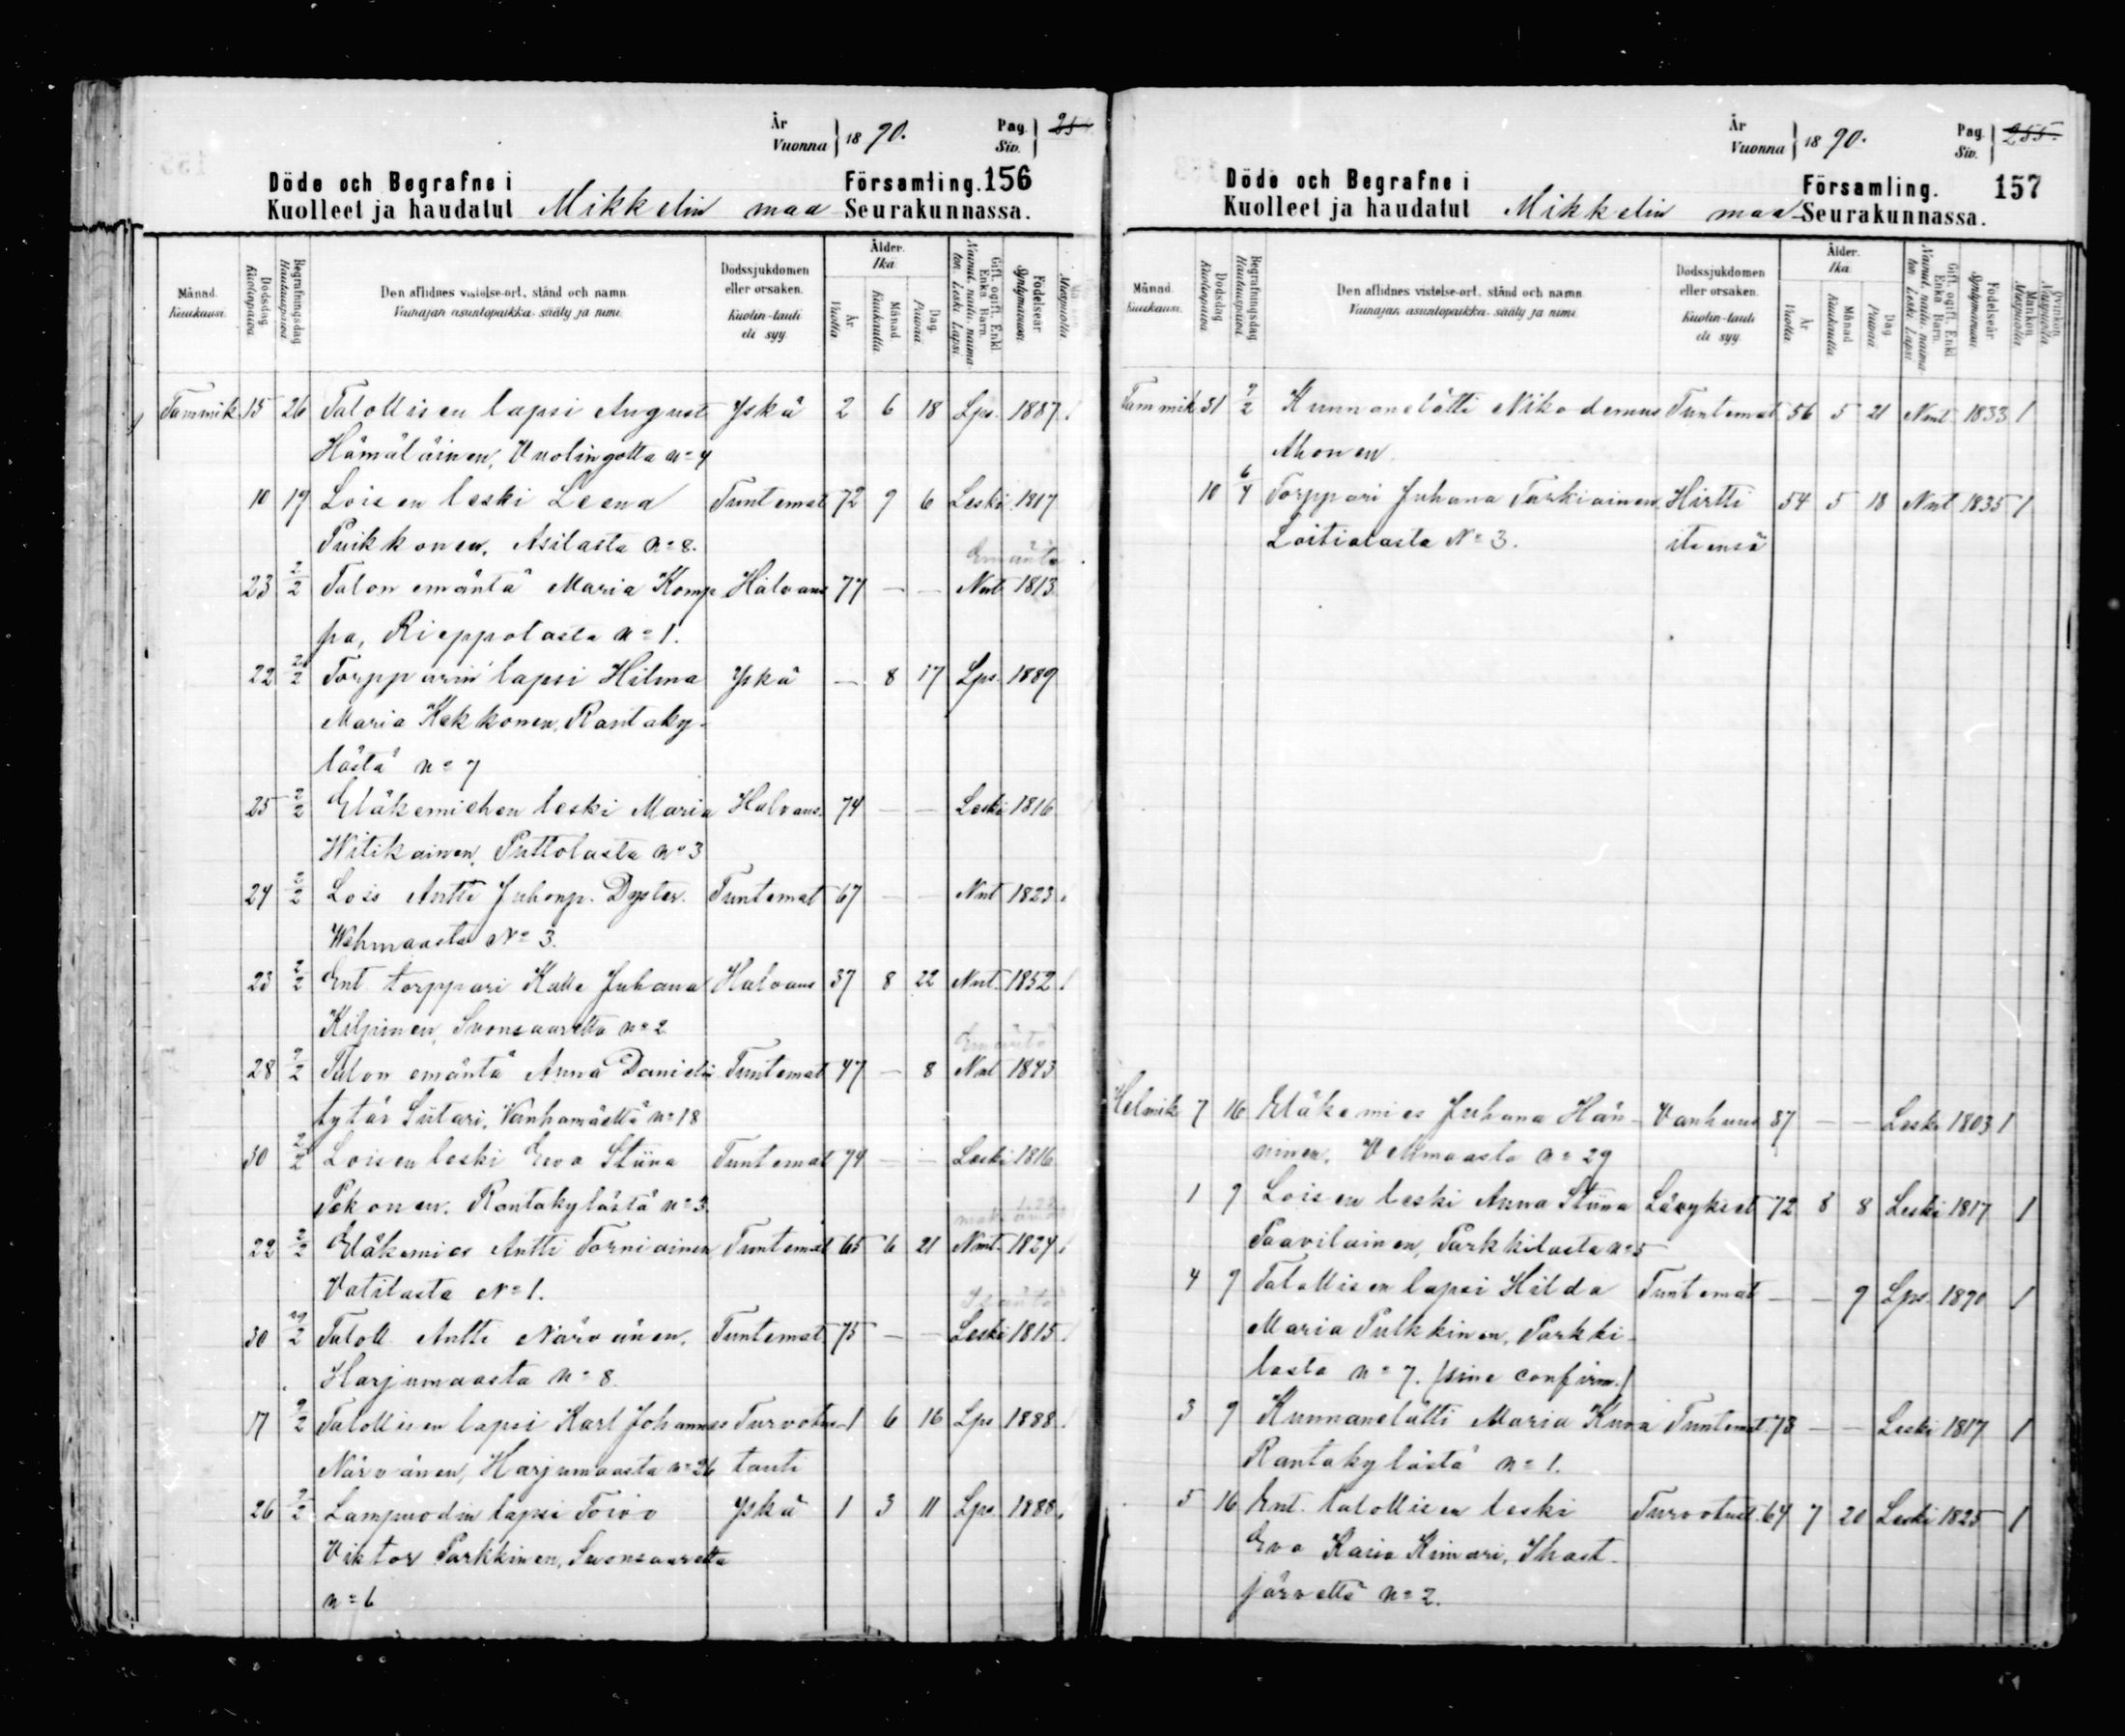 År
Vuonna 18 90. Pag. Siv.
Döde och Begrafne i Församling. 156
Kuolleet ja haudatut Mikkelin maa Seurakunnassa.
Månad. Kuukausi.
Dödsdag Kuolinpäivä
Begrafningsdag Hautauspäivä
Den aflidnes vistelse-ort, stånd och namn.
Vainajan asuntopaikka, sääty ja nimi.
Dödssjukdomen eller orsaken.
Kuolin-tauti eli syy.
Ålder. Ikä.
År Vuotta
Månad Kuukautta
Dag. Päivää
Gift, ogift, Enkl. Enka, Barn.
Födelseår Syntymävuosi
Tammik. 15 26 Talollisen lapsi August Yskä 2 6 18 Lps. 1887
Hämäläinen, Vuolingolta n=4
10 19 Loisen leski Leena Tuntemat 72 9 6 Leski 1817
Puikkonen, Asilasta n=8.
Emäntä
23 2/2 Talon emäntä Maria Komp Halvaus 77 — — Nnt 1813
pa, Rieppolasta n=1.
22 2/2 Torpparin lapsi Hilma Yskä — 8 17 Lps. 1889
Maria Kekkonen, Rantaky-
lästä n=7
25 2/2 Eläkemiehen leski Maria Halvaus. 74 — — Leski 1816
Witikainen, Puttolasta n=3
24 2/2 Lois Antti Juhonp. Dyster. Tuntemat 67 — — Nnt 1823
Wehmaasta N=3.
23 2/2 Ent. torppari Kalle Juhana Halvaus 37 8 22 Nnt. 1852
Kilpinen, Suonsaarelta n=2
Emäntä
28 9/2 Talon emäntä Anna Danielin Tuntemat 47 — 8 Nnt 1843
tytär Siitari, Vanhamäeltä n=18
30 2/2 Loisen leski Eeva Stiina Tuntemat 74 — — Leski 1816
Pekonen, Rantakylästä n=3.
22 2/2 Eläkemies Antti Torniainen Tuntemat 65 6 21 Nnt. 1824
Vatilasta N=1.
30 Taloll Antti Närvänen, Tuntemat 75 — — Leski 1815
Harjumaasta n=8.
17 9/2 Talollisen lapsi Karl Johannes Turvotus- 1 6 16 Lps 1888
Närvänen, Harjumaasta n=26 tauti
26 2/2 Lampuodin lapsi Toivo Yskä 1 3 11 Lps. 1888
Viktor Parkkinen, Suonsaarelta
n=6
År
Vuonna 18 90. Pag. Siv. 255.
Döde och Begrafne i Församling. 157
Kuolleet ja haudatut Mikkelin maa- Seurakunnassa.
Månad. Kuukausi.
Dödsdag Kuolinpäivä
Begrafningsdag Hautauspäivä
Den aflidnes vistelse-ort, stånd och namn.
Vainajan asuntopaikka, sääty ja nimi.
Dödssjukdomen eller orsaken.
Kuolin-tauti eli syy.
Ålder. Ikä.
År Vuotta
Månad Kuukautta
Dag Päivää
Gift, ogift, Enkl. Enka, Barn.
Födelseår Syntymävuosi
Mankön Miespuolia
Qvinkön Naispuolia
Tammik 31 9/2 Kunnanelätti Nikodemus Tuntemat 56 5 21 Nnt 1833 /
Ahonen
10 6/4 Torppari Juhana Tarkiainen, Hirtti 54 5 18 Nnt 1835 /
Loitialasta N=3. itsensä
Helmik 7 16 Eläkemies Juhana Hän- Vanhuus 87 — — Leski 1803 /
ninen, Vehmaasta n=29
1 9 Loisen leski Anna Stiina Lävykset 72 8 8 Leski 1817 /
Paavilainen, Parkkilasta n=5
4 9 Talollisen lapsi Hilda Tuntemat — — 9 Lps. 1890 /
Maria Pulkkinen, Parkki-
lasta n=7. /sine confirm./
3 9 Kunnanelätti Maria Kuva Tuntemat 73 — — Leski 1817 /
Rantakylästä n=1.
5 16 Ent. talollisen leski Turvotust. 64 7 20 Leski 1825 /
Eva Kaisa Kinnari, Ihast-
järveltä n=2.